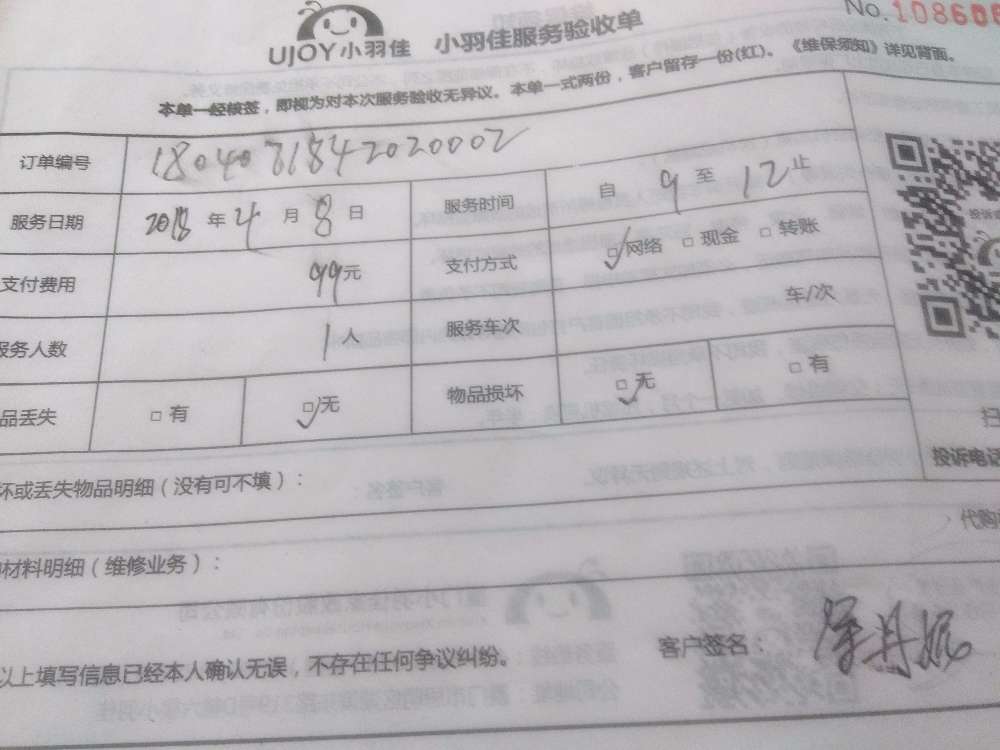 UJOY小羽佳 小羽佳服务验收单
No.108606
本单一经核签，即视为对本次服务验收无异议。本单一式两份，客户留存一份(红)。《维保须知》详见背面。
订单编号 1804081842020002
服务日期 2018年4月8日 服务时间 自9至12止
支付费用 99元 支付方式 网络 现金 转账
服务人数 1人 服务车次 车/次
品丢失 有 无 物品损坏 无 有
坏或丢失物品明细（没有可不填）：
材料明细（维修业务）：
代购
投诉电话
以上填写信息已经本人确认无误，不存在任何争议纠纷。 客户签名：